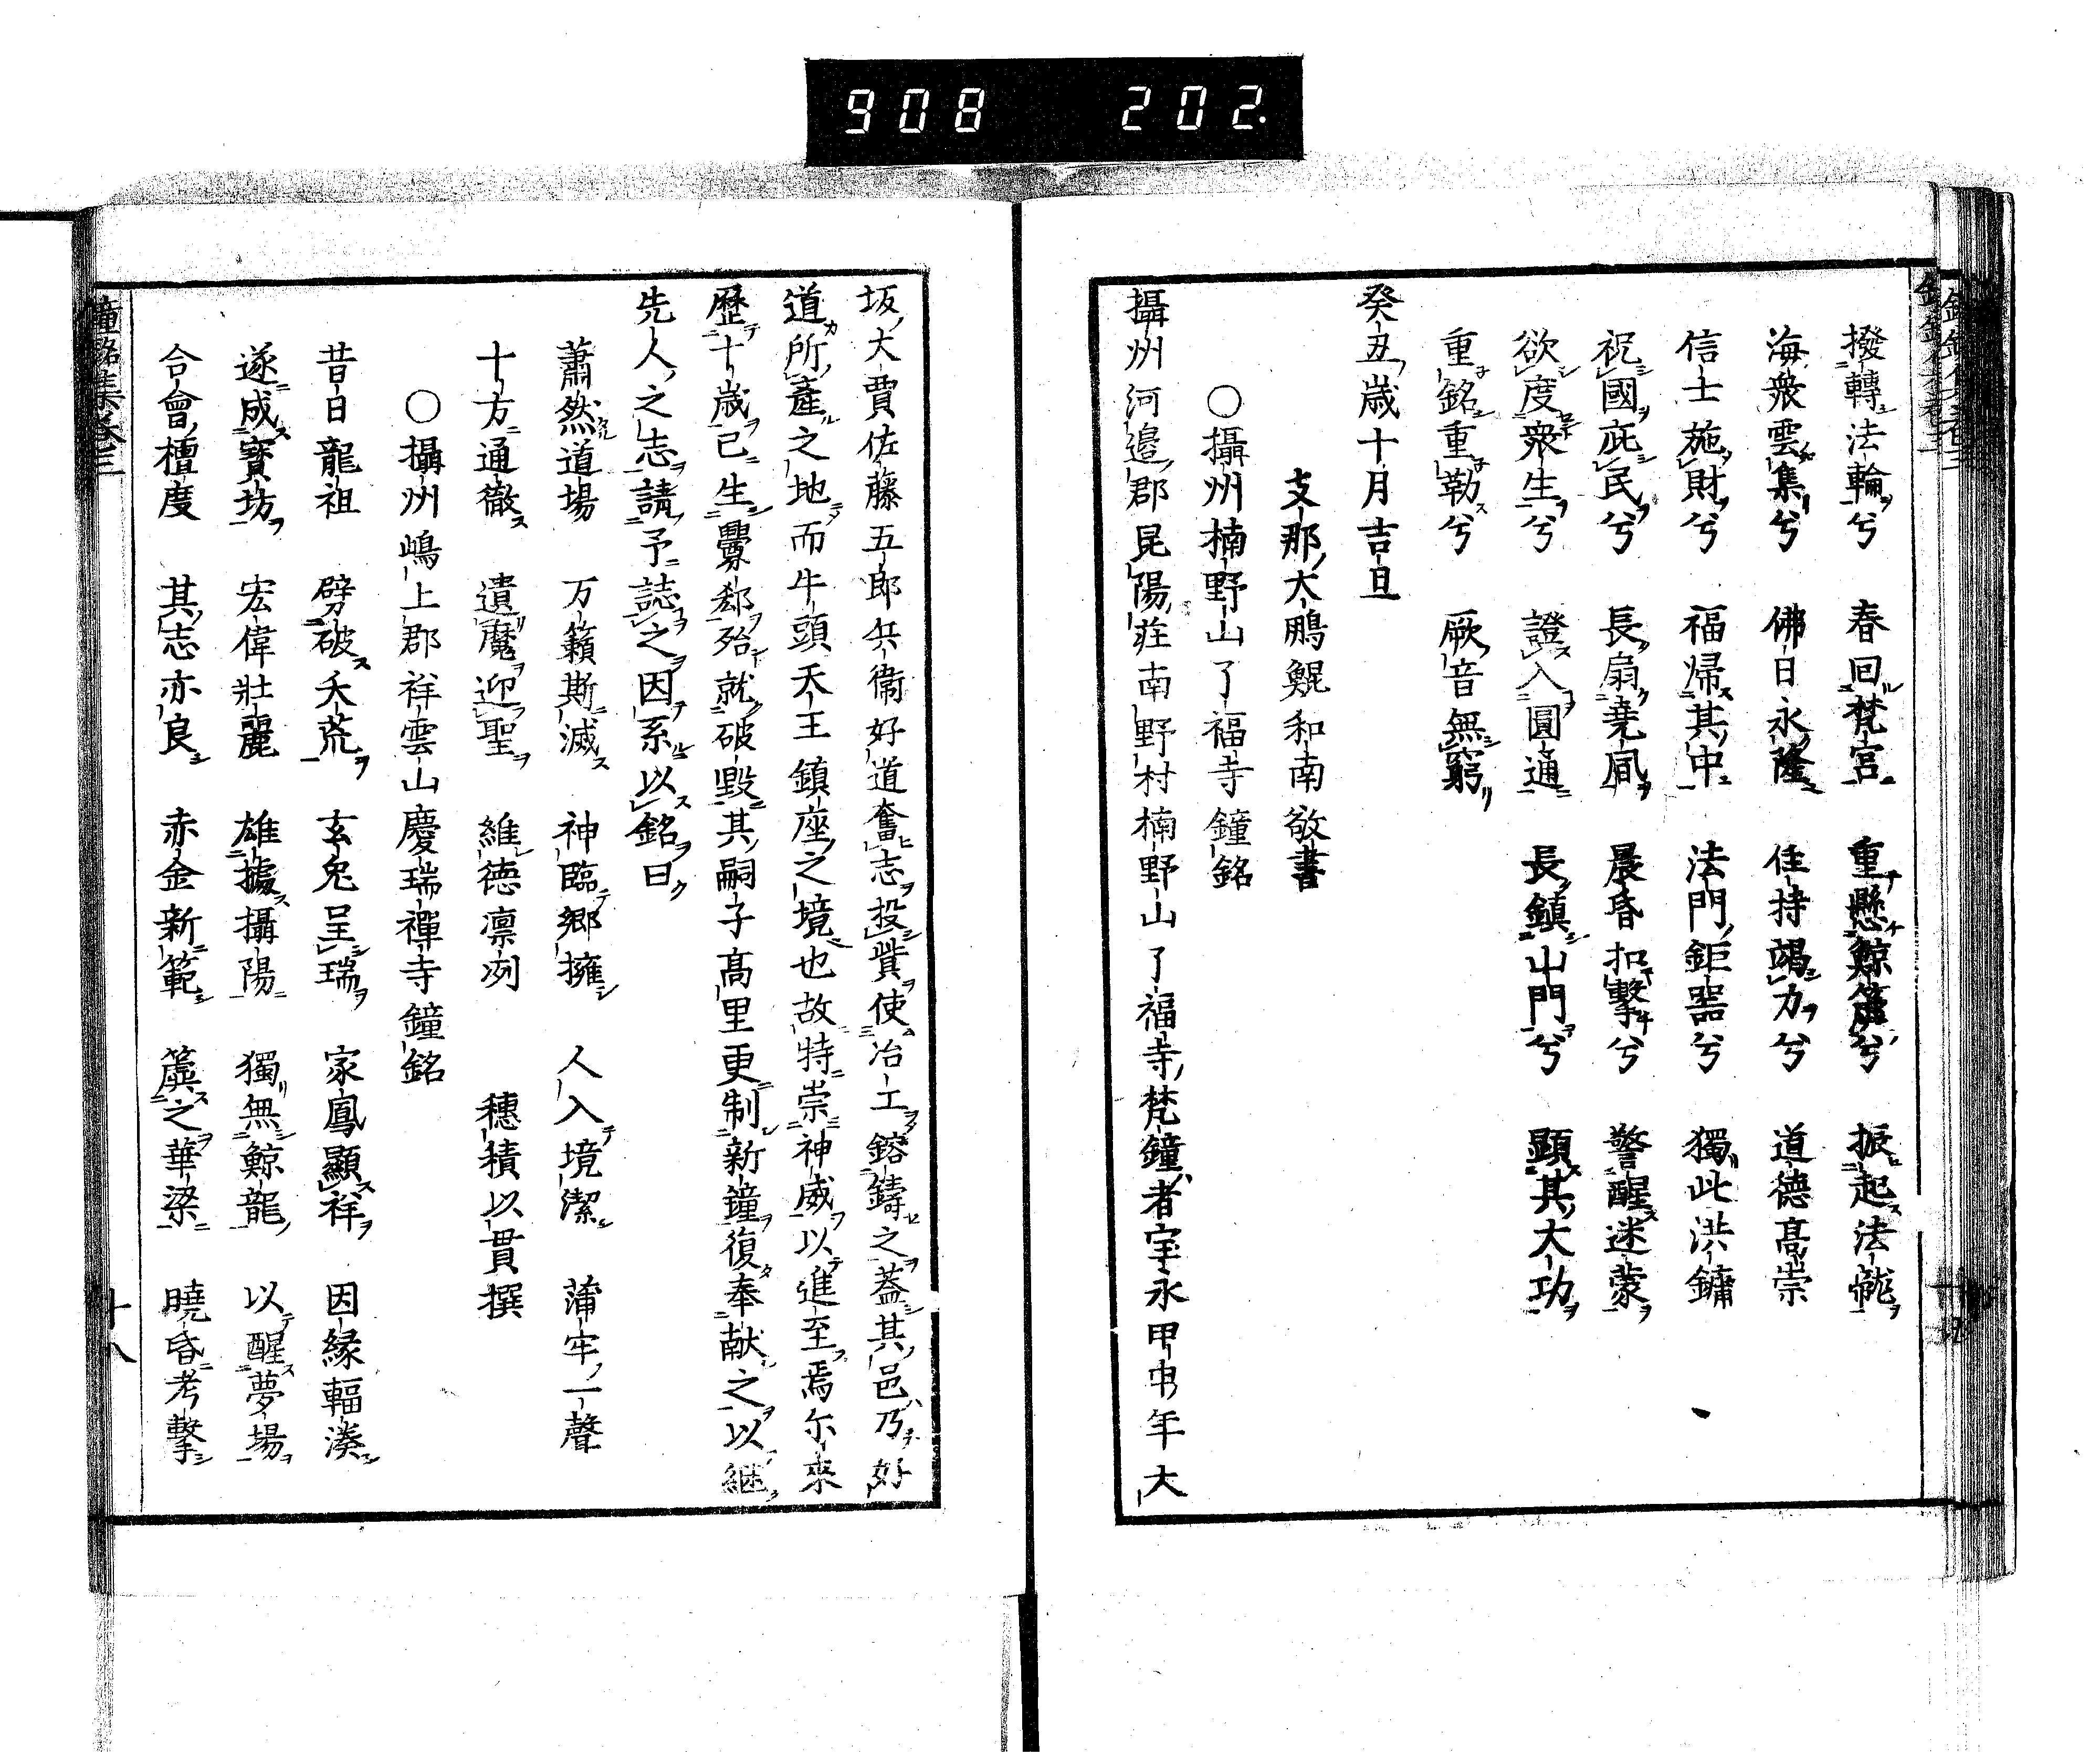 908 202.
撥轉法輪兮 春回梵宮 重懸鯨簴兮 振起法龍
海衆雲集兮 佛日永隆 住持竭力兮 道德高崇
信士施財兮 福帰其中 法門鉅器兮 獨此洪鏞
祝國庇民兮 長扇堯凮 晨昏扣擊兮 警醒迷蒙
欲度衆生兮 證入圓通 長鎮山門兮 顕其大功
重銘重勒兮 厥音無窮
癸丑歳十月吉旦
支那大鵬鯤和南敬書
○攝州楠野山了福寺鐘銘
攝州河邉郡昆陽荘南野村楠野山了福寺梵鐘者宝永甲申年大
坂大賈佐藤五郎兵衞好道奮志投貲使冶工鎔鑄之蓋其邑乃好
道所產之地而牛頭天王鎮座之境也故特崇神威以進至焉尓來
歴十歳已生釁郄殆就破毀其嗣子髙里更制新鐘復奉献之以継
先人之志請予誌之因系以銘曰
蕭然道場 万籟斯滅 神臨郷擁 人入境潔 蒲牢一聲
十方通徹 遺魔迎聖 維德凛冽 穗積以貫撰
○攝州嶋上郡祥雲山慶瑞禪寺鐘銘
昔日龍祖 劈破天荒 玄兔呈瑞 家鳳顯祥 因縁輻湊
遂成寶坊 宏偉壯麗 雄據攝陽 獨無鯨龍 以醒夢場
合會檀度 其志亦良 赤金新範 簴之華梁 曉昏考擊
鐘銘集卷三
十八